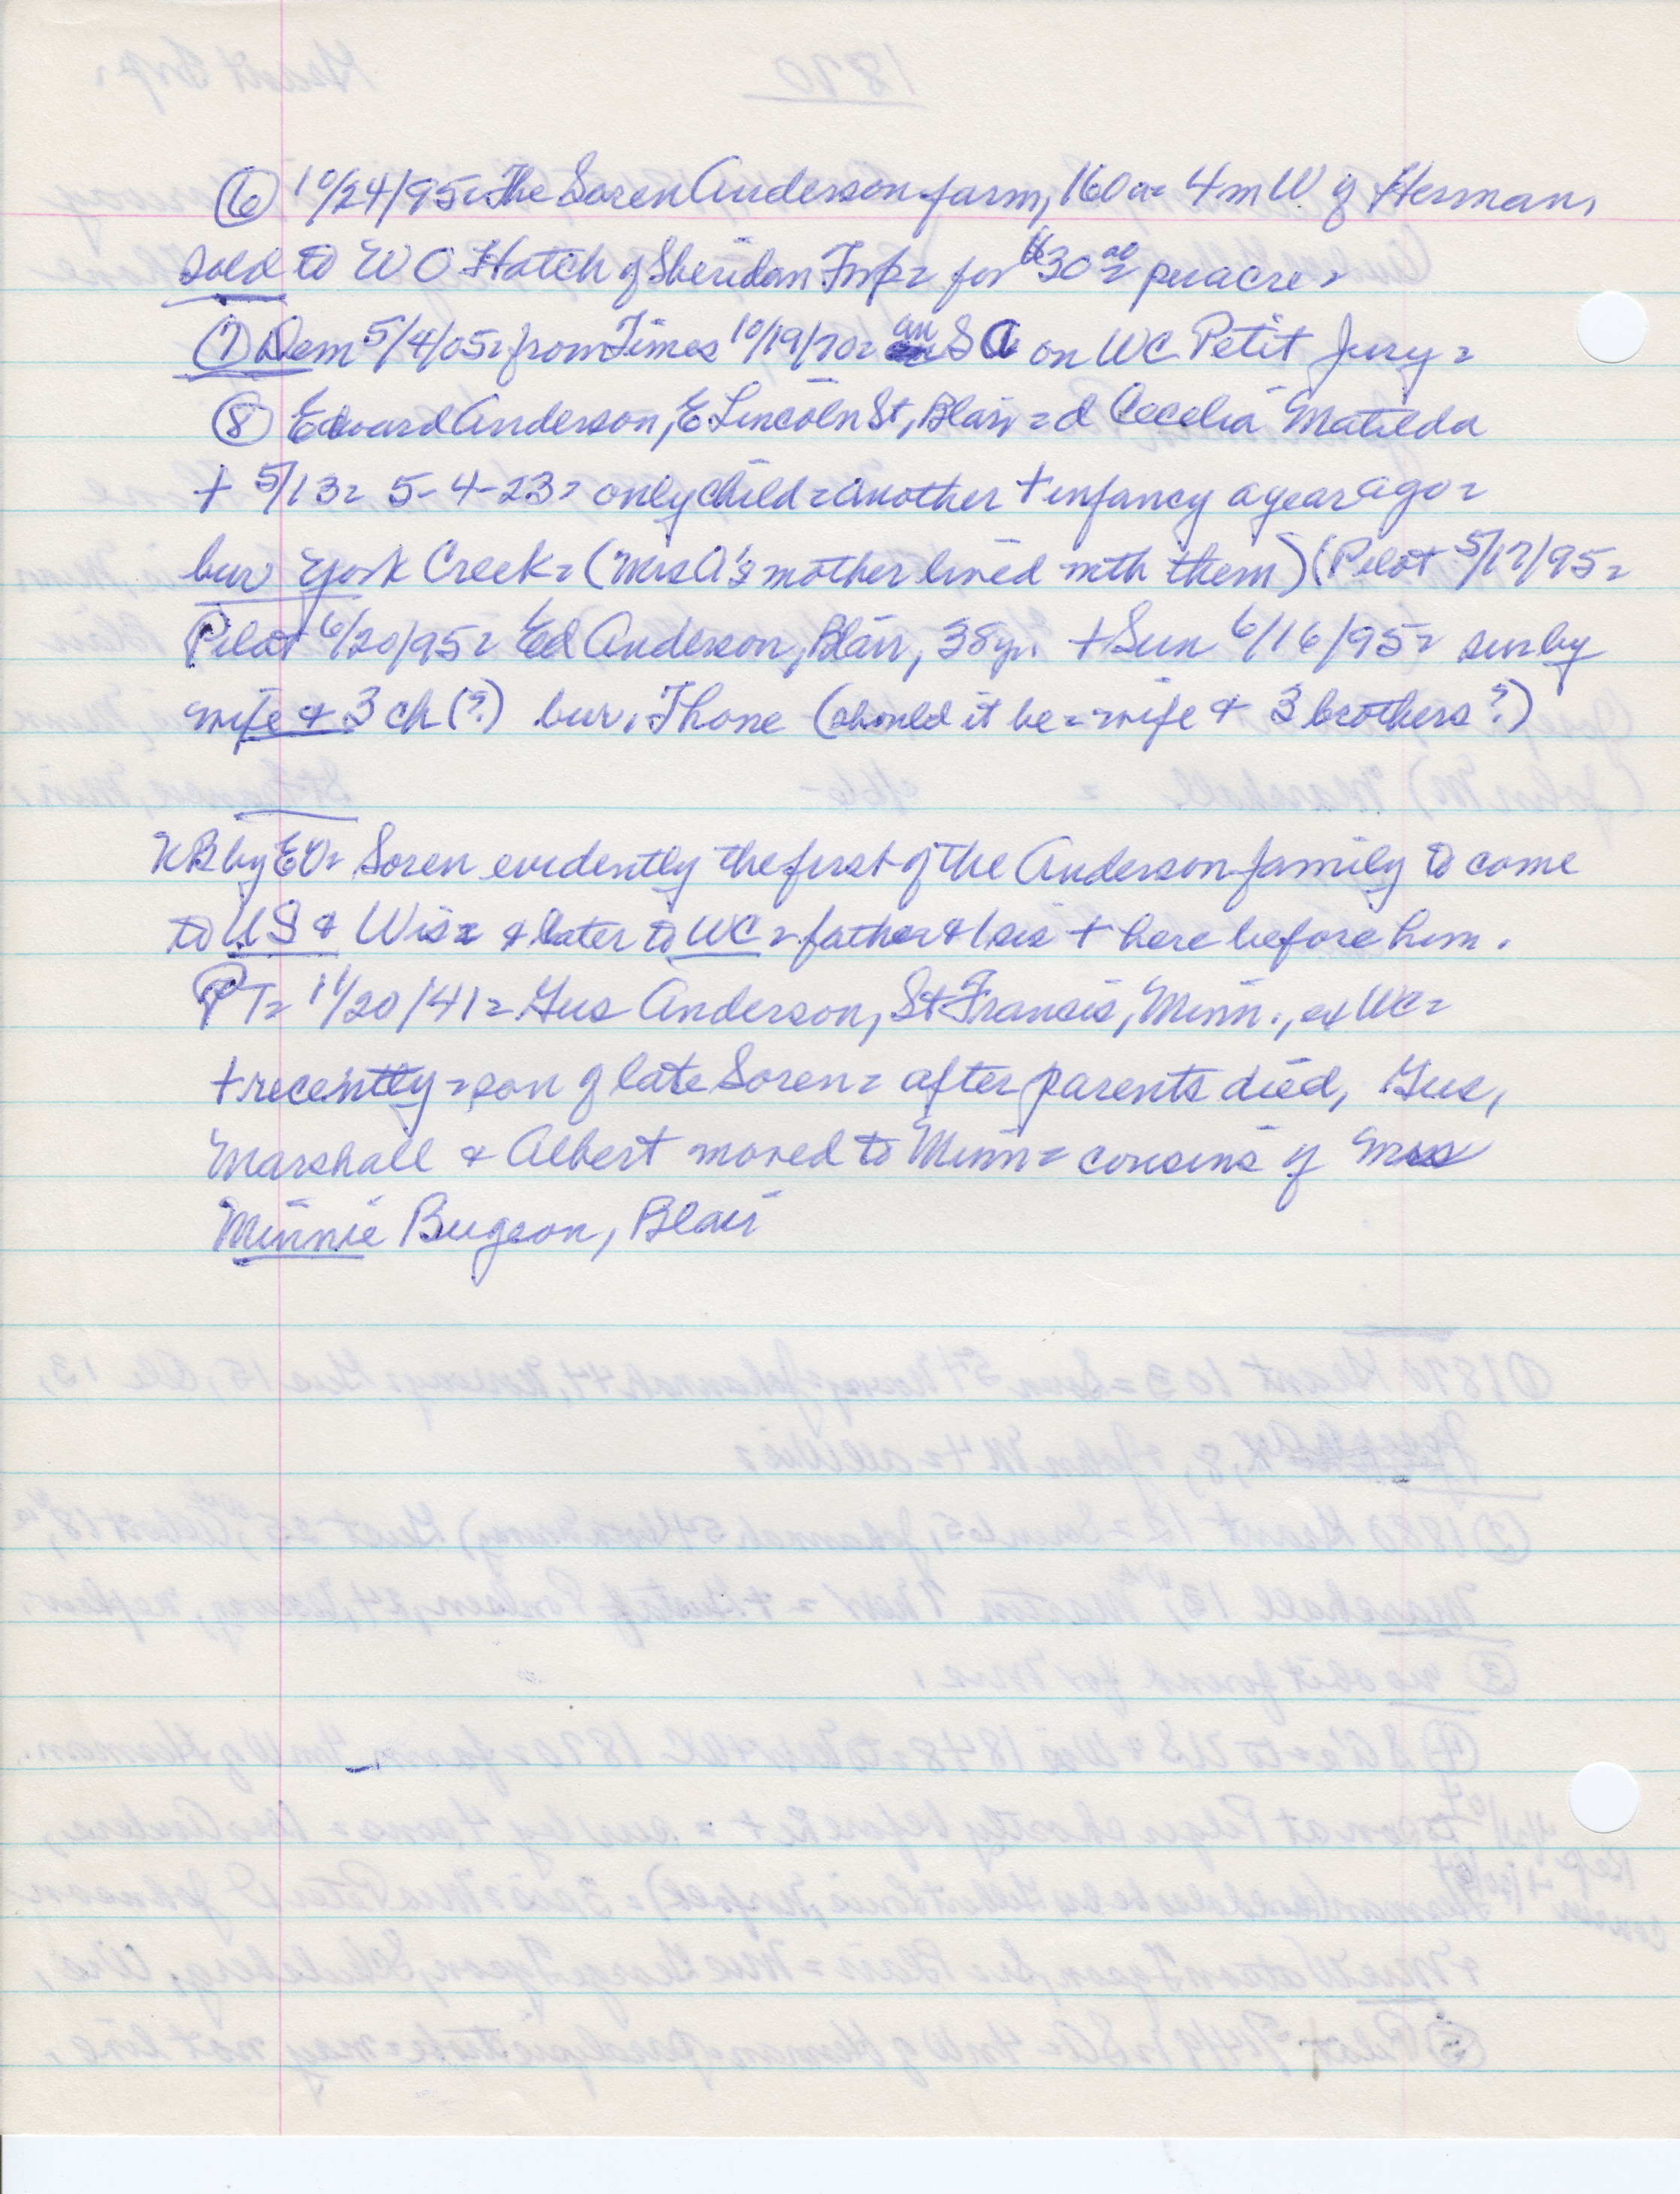 ⑥ 10/24/95= The Soren Anderson farm, 160a= 4 m W of Herman,
sold to W O Hatch of Sheridan Twp= for $30.00 per acre=
⑦ Dem 5/4/05= from Times 10/19/70= an S A on WC Petit Jury=
⑧ Edward Anderson, E Lincoln St, Blair, = d Cecelia Matilda
+ 5/13= 5-4-23= only child = another + infancy a year ago=
bur York Creek= (Mrs A's mother lived with them) (Pilot 5/17/95=
Pilot 6/20/95= Ed Anderson, Blair, 38 yr. + Sun 6/16/95= sur by
wife & 3 ch (?) bur. Thone (should it be = wife & 3 brothers?)
NB by EO= Soren evidently the first of the Anderson family to come
to US & Wis= & later to WC = father & 1 sis + here before him.
PT= 11/20/41= Gus Anderson, St Francis, Minn., ex WC=
+ recently = son of late Soren= after parents died, Gus,
Marshall & Albert moved to Minn= cousins of Mrs
Minnie Bugeon, Blair